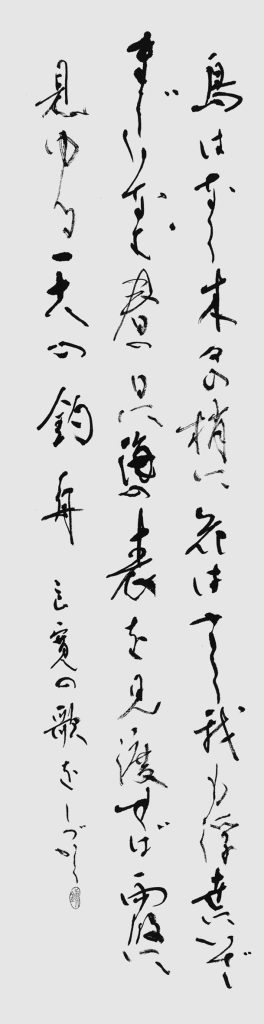 鳥はなく木々の梢に花はさく我も浮世にいざ
まじりなむ春の日に海の表を見渡せば霞に
見ゆる天の釣舟 良寛の歌を しづかく